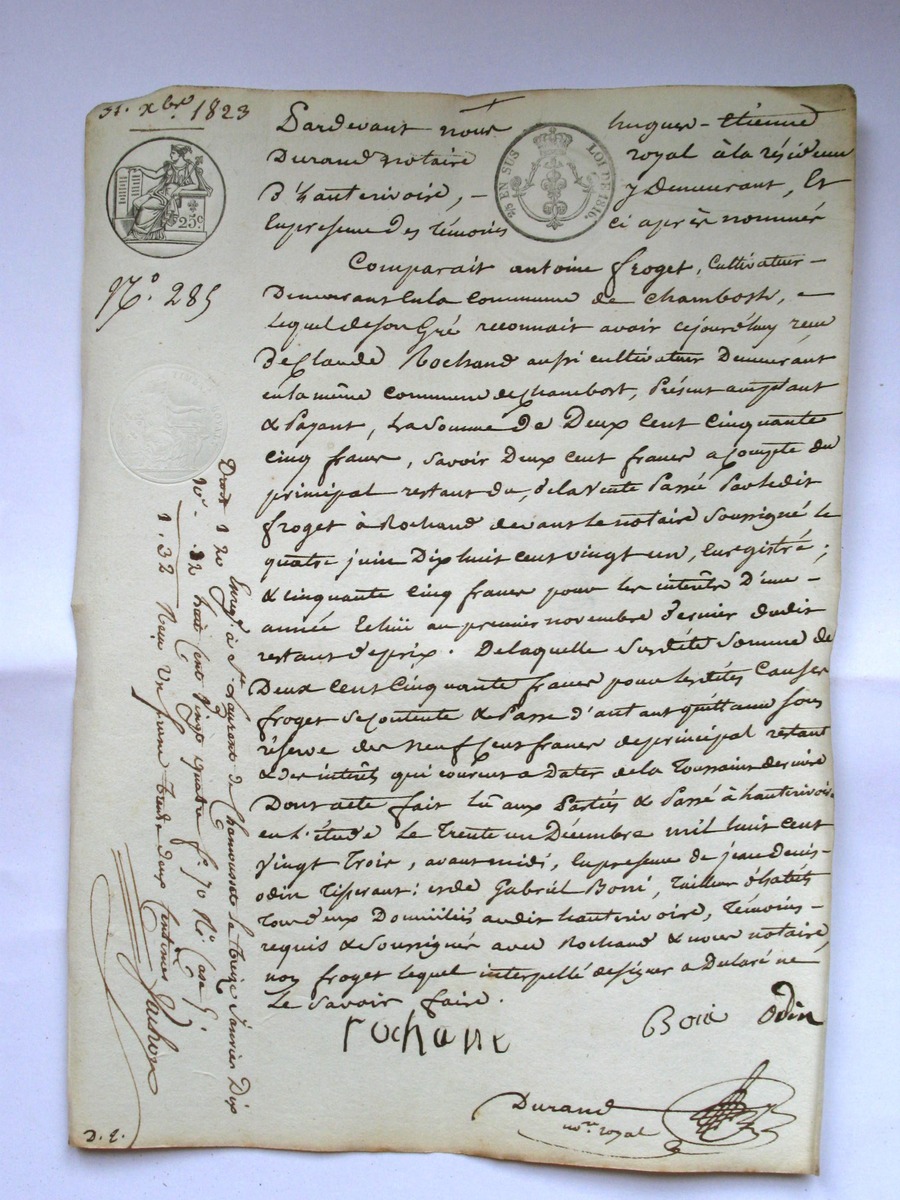 31. Xbre. 1823
Pardevant nous hugues-Etienne
Durand notaire royal à la résidence
D'hauterivoire, - y Demeurant, Et
En presence des témoins ci après nommés
25 EN SUS LOI DE 1816.
25c.
No. 285
Comparait antoine froget, Cultivateur -
Demeurant en la Commune de Chambost, -
lequel de son Gré reconnait avoir cejourd'huy reçu
De Claude Rochand aussi cultivateur Demeurant
en la même Commune de Chambost, Présent acceptant
& Payant, La Somme de Deux Cent Cinquante
cinq francs, Savoir Deux Cent francs a Compte du
principal restant du, de la Vente Passé Par ledit
froget à Rochand devant le notaire Soussigné le
quatre juin Dix huit cent vingt un, Enregistré ;
& cinquante cinq francs pour les intérêts D'une -
année Echüe au premier novembre Dernier dudit
restant de prix. De laquelle Susdite Somme de
Deux Cent Cinquante francs pour les dites Causes
froget se Contente & Passe d'autant quittance sous
réserve des Neuf Cent francs de principal restant
& des intérêts qui courent a Dater de la Toussaint derniere
Dont acte fait lû aux Parties & Passé à hauterivoire
en l'étude le Trente un Décembre mil huit cent
Vingt Trois, avant midi, En presence de jean Denis -
odin Tisserant ; & de Gabriël Borié, Tailleur d'habits
Tous deux Domiciliés audit hauterivoire, Témoins -
requis & Soussignés avec Rochand & nous notaire
non froget lequel interpellé de signer a Déclaré ne
le Savoir faire.
rochand
Borié Odin
Durand
nore royal
D. E.
Droit 1 20 Enregé à St. Laurent de Chamousset le treize Janvier Dix
10e - .12 huit Cent Vingt quatre f. 70 Ro Case 5.
1.32 Reçu Un franc trente deux Centimes